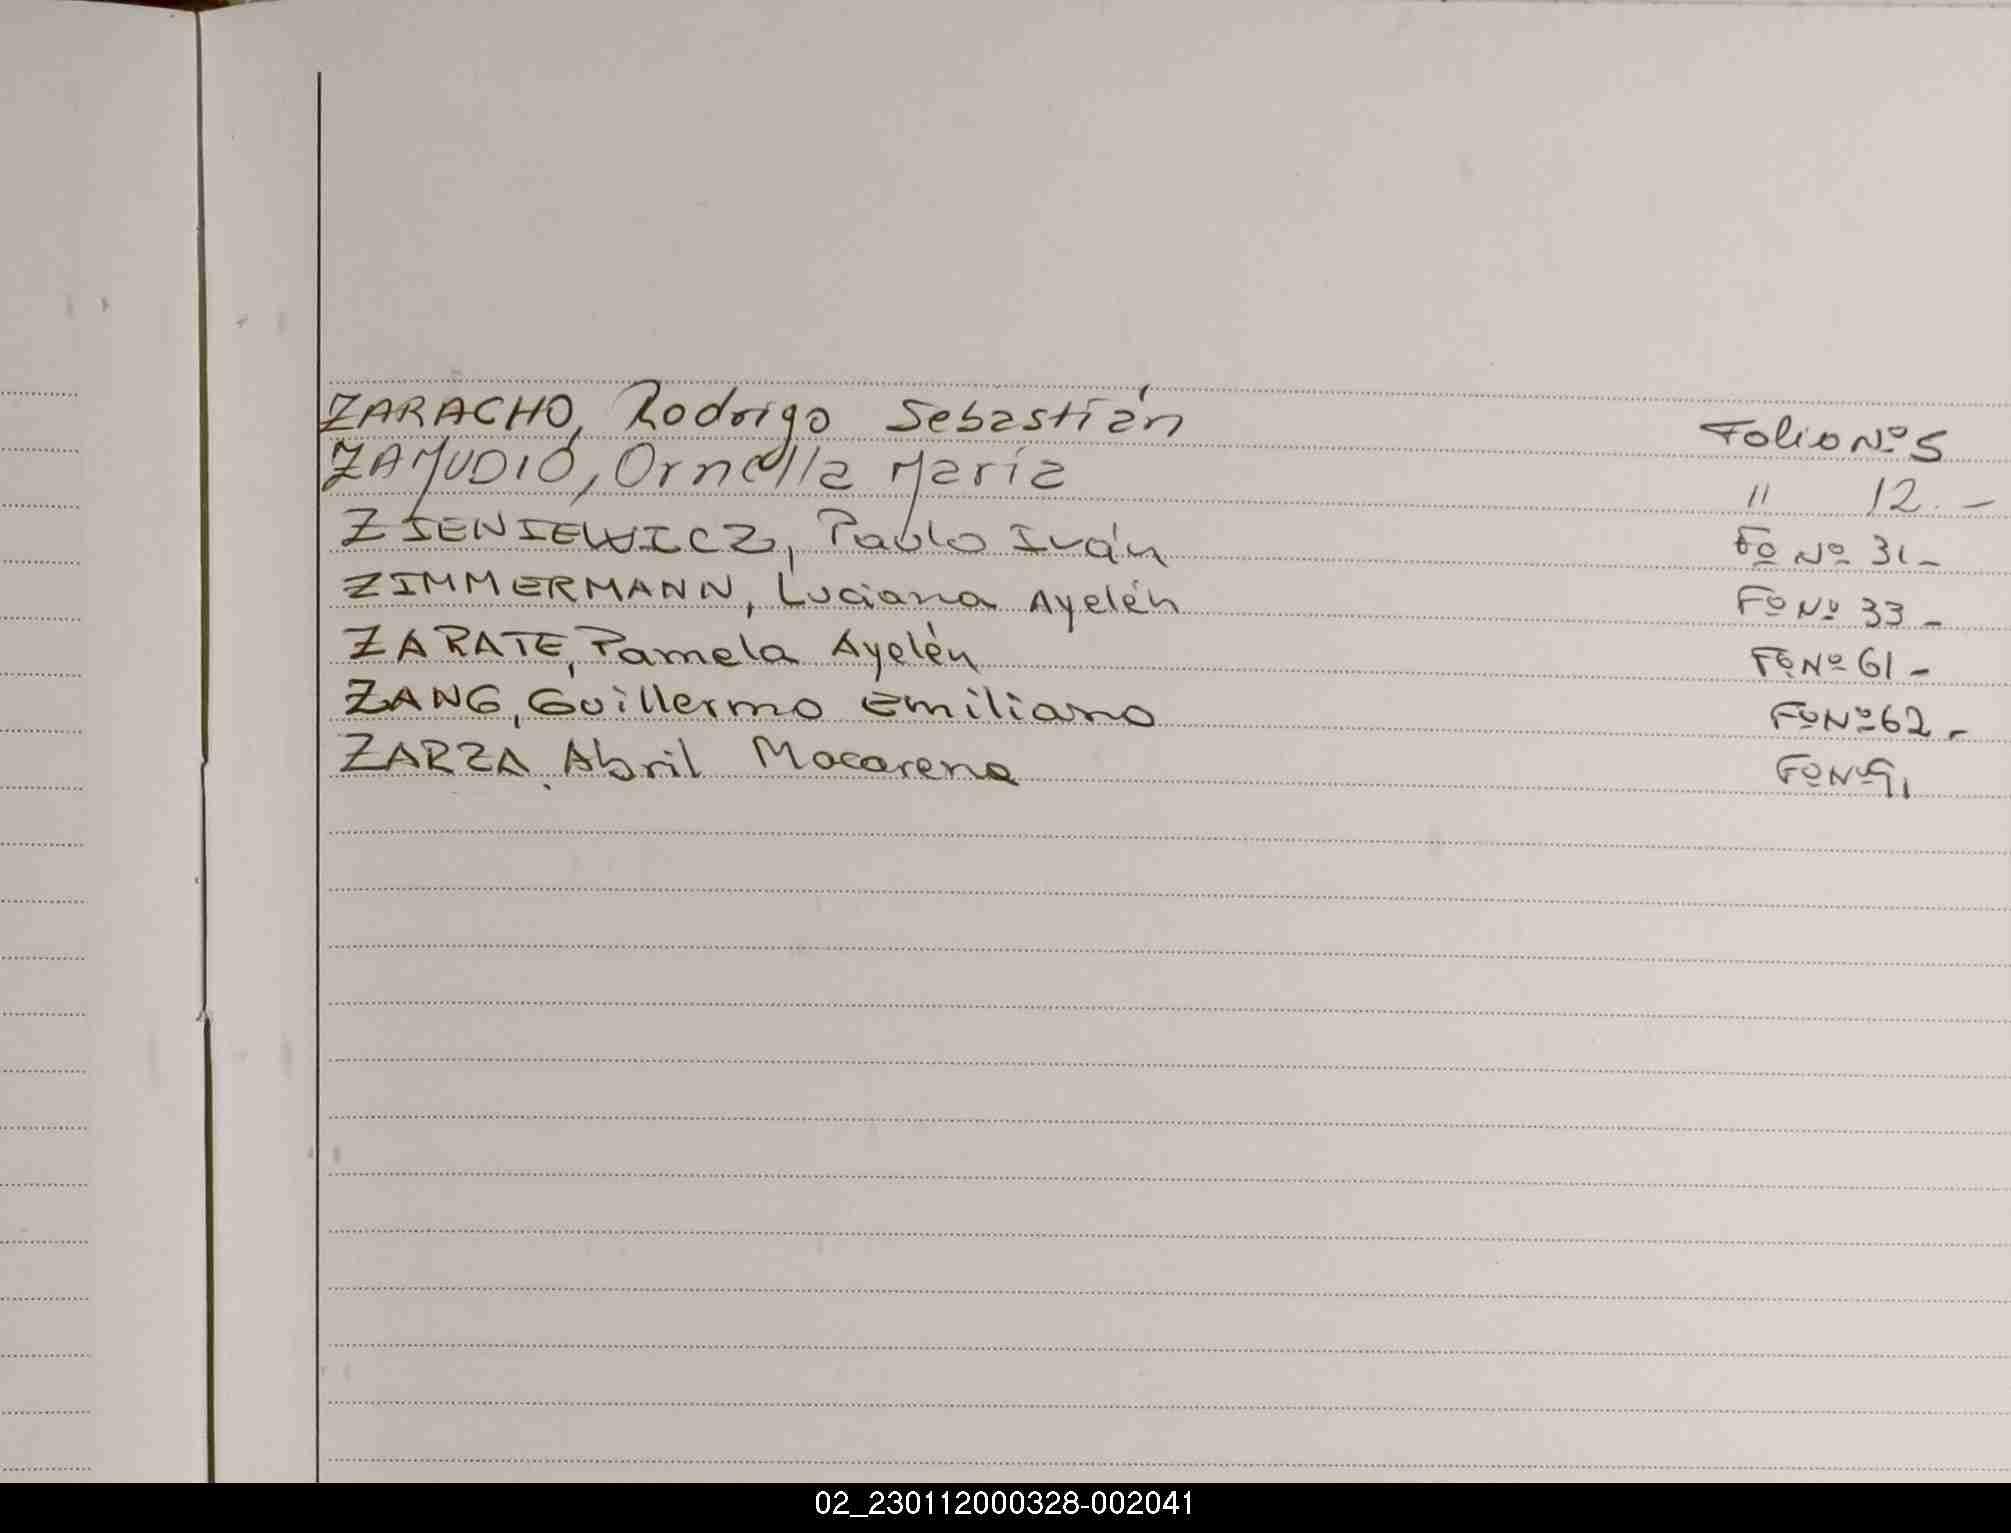 ZARACHO, Rodrigo Sebastián Folio Nº 5
ZAMUDIO, Ornella María " 12.-
ZIENIEWICZ, Pablo Iván Fº Nº 31-
ZIMMERMANN, Luciana Ayelén Fº Nº 33-
ZARATE, Pamela Ayelén Fº Nº 61-
ZANG, Guillermo Emiliano Fº Nº 62-
ZARZA, Abril Macarena Fº Nº 91
02_230112000328-002041